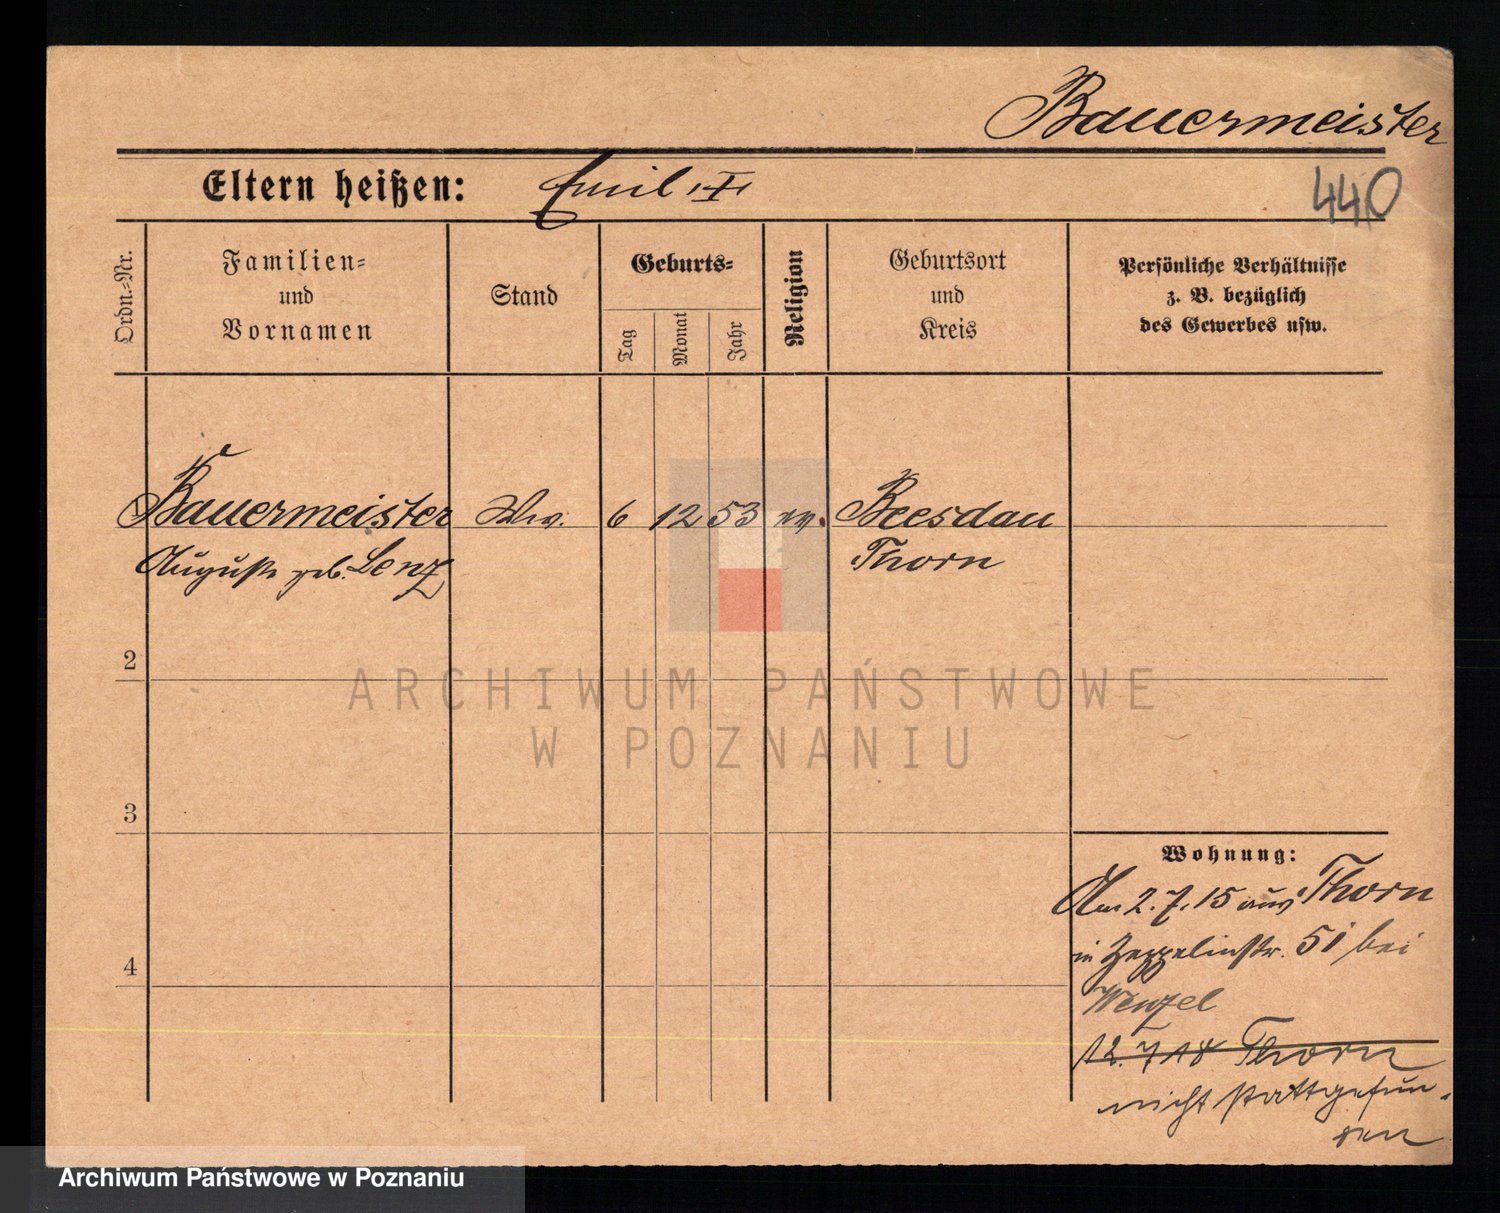 Bauermeister
Eltern heißen: Emil †
440
Ordn.-Nr.
Familien-
und
Vornamen
Stand
Geburts-
Tag
Monat
Jahr
Religion
Geburtsort
und
Kreis
Persönliche Verhältnisse
z. B. bezüglich
des Gewerbes usw.
Bauermeister Ww. 6 12 53 ev. Beesdau
Auguste geb. Lenz Thorn
2
3
4
ARCHIWUM PAŃSTWOWE
W POZNANIU
Wohnung:
Am 2.7.15 aus Thorn
in Zeppelinstr. 51 bei
Wenzel
12.7.18 Thorn
nicht stattgefun-
den
Archiwum Państwowe w Poznaniu